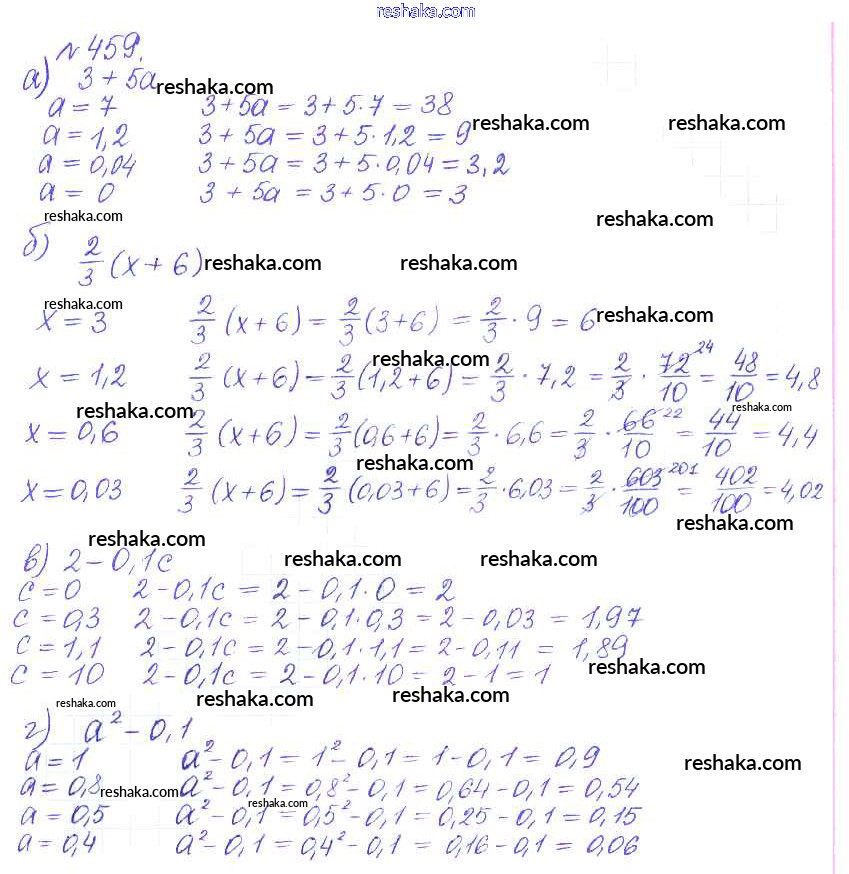 reshaka.com
№ 459.
а) 3 + 5a reshaka.com
a = 7 3 + 5a = 3 + 5·7 = 38
reshaka.com reshaka.com
a = 1,2 3 + 5a = 3 + 5·1,2 = 9
a = 0,04 3 + 5a = 3 + 5·0,04 = 3,2
a = 0 3 + 5a = 3 + 5·0 = 3
reshaka.com reshaka.com
б) 2/3 (x + 6) reshaka.com reshaka.com
reshaka.com reshaka.com
x = 3 2/3 (x + 6) = 2/3 (3 + 6) = 2/3 · 9 = 6
reshaka.com
x = 1,2 2/3 (x + 6) = 2/3 (1,2 + 6) = 2/3 · 7,2 = 2/3 · 72/10 24 = 48/10 = 4,8
reshaka.com reshaka.com
x = 0,6 2/3 (x + 6) = 2/3 (0,6 + 6) = 2/3 · 6,6 = 2/3 · 66/10 22 = 44/10 = 4,4
reshaka.com
x = 0,03 2/3 (x + 6) = 2/3 (0,03 + 6) = 2/3 · 6,03 = 2/3 · 603/100 201 = 402/100 = 4,02
reshaka.com
reshaka.com
в) 2 - 0,1c reshaka.com reshaka.com
c = 0 2 - 0,1c = 2 - 0,1·0 = 2
c = 0,3 2 - 0,1c = 2 - 0,1·0,3 = 2 - 0,03 = 1,97
c = 1,1 2 - 0,1c = 2 - 0,1·1,1 = 2 - 0,11 = 1,89
reshaka.com
c = 10 2 - 0,1c = 2 - 0,1·10 = 2 - 1 = 1
reshaka.com reshaka.com reshaka.com
г) a² - 0,1
a = 1 a² - 0,1 = 1² - 0,1 = 1 - 0,1 = 0,9
reshaka.com
a = 0,8 reshaka.com a² - 0,1 = 0,8² - 0,1 = 0,64 - 0,1 = 0,54
reshaka.com
a = 0,5 a² - 0,1 = 0,5² - 0,1 = 0,25 - 0,1 = 0,15
a = 0,4 a² - 0,1 = 0,4² - 0,1 = 0,16 - 0,1 = 0,06